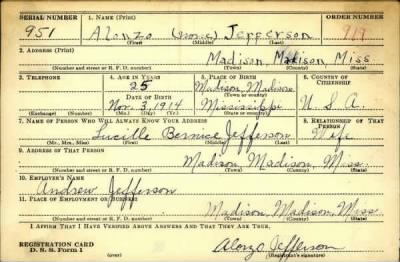 SERIAL NUMBER 1. NAME (Print) ORDER NUMBER
951 Alonzo (none) Jefferson
(First) (Middle) (Last)
2. ADDRESS (Print)
Madison, Madison, Miss
(Number and street or R. F. D. number) (Town) (County) (State)
3. TELEPHONE 4. AGE IN YEARS 5. PLACE OF BIRTH 6. COUNTRY OF CITIZENSHIP
25 Madison, Madison
DATE OF BIRTH (Town or county)
Nov. 3, 1914 Mississippi U. S. A.
(Exchange) (Number) (Mo.) (Day) (Yr.) (State or country)
7. NAME OF PERSON WHO WILL ALWAYS KNOW YOUR ADDRESS 8. RELATIONSHIP OF THAT PERSON
Lucille Bernice Jefferson Wife
(Mr., Mrs., Miss) (First) (Middle) (Last)
9. ADDRESS OF THAT PERSON
Madison, Madison, Miss.
(Number and street or R. F. D. number) (Town) (County) (State)
10. EMPLOYER'S NAME
Andrew Jefferson
11. PLACE OF EMPLOYMENT OR BUSINESS
Madison, Madison, Miss
(Number and street or R. F. D. number) (Town) (County) (State)
I AFFIRM THAT I HAVE VERIFIED ABOVE ANSWERS AND THAT THEY ARE TRUE.
REGISTRATION CARD
D. S. S. Form 1 Alonzo Jefferson
(Registrant's signature)